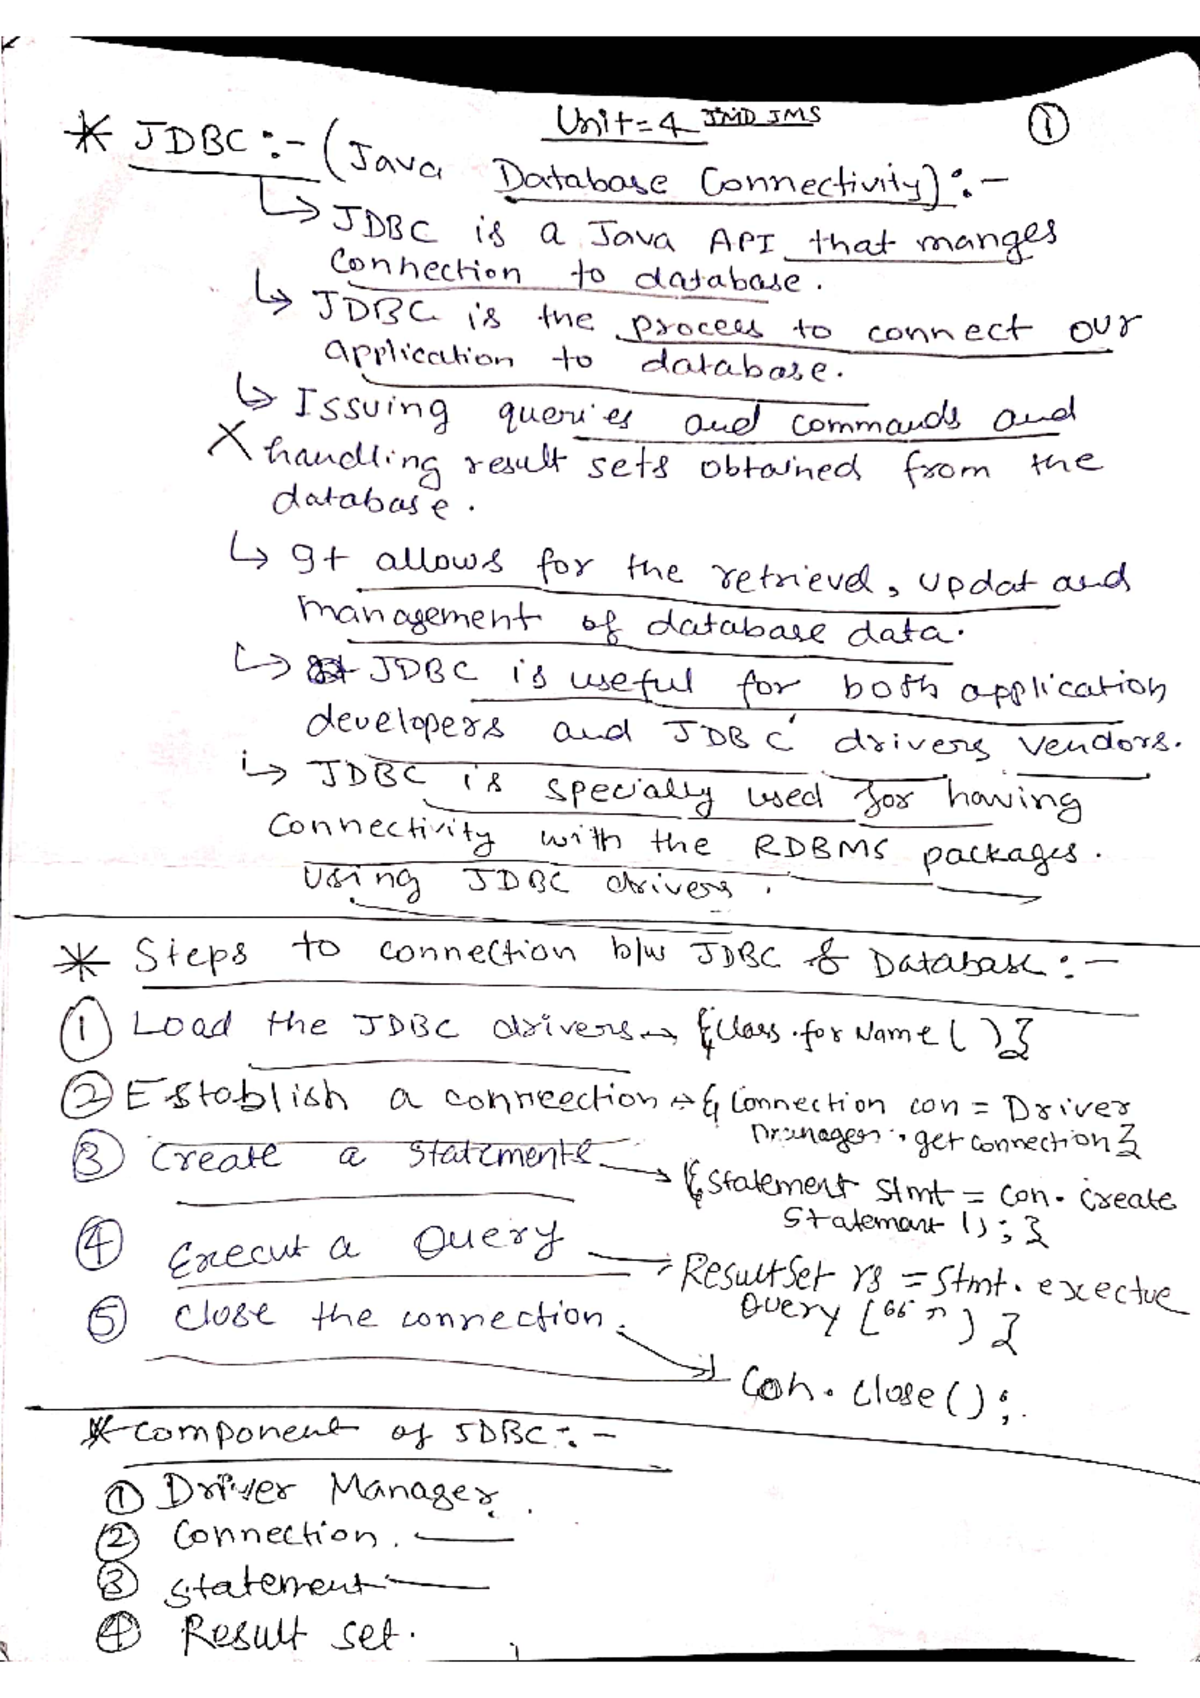 Unit=4 JMD JMS
①
* JDBC:- (Java Database Connectivity):-
↳ JDBC is a Java API that manges
Connection to database.
↳ JDBC is the process to connect our
application to database.
↳ Issuing queries and commands and
X handling result sets obtained from the
database.
↳ It allows for the retrievel, updat and
management of database data.
↳ JDBC is useful for both application
developers and JDBC drivers vendors.
↳ JDBC is specially used for having
Connectivity with the RDBMS packages.
using JDBC drivers.
* Steps to connection b/w JDBC & Database:-
① Load the JDBC drivers → {Class.forName( )}
② Establish a conneection → { Connection con = Driver
Manager.getconnection}
③ Create a statements → {Statement stmt = con.create
Statemant ();}
④ Execut a Query → ResultSet rs = stmt.exectue
Query [“ ”) }
⑤ Close the connection. → Con.close();
* Component of JDBC:-
① Driver Manager.
② Connection.
③ Statement
④ Result set.